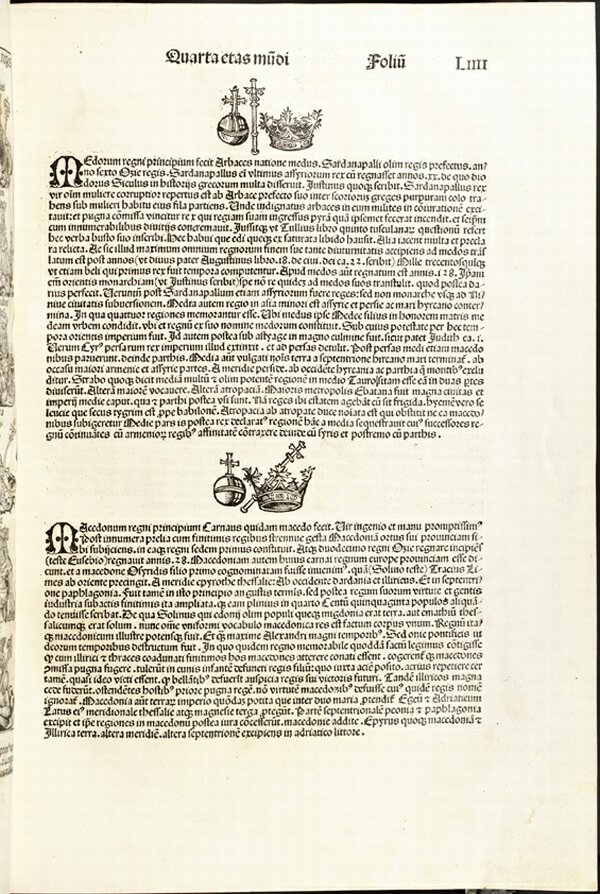 Quarta etas mũdi Foliũ LIIII
MEdorum regni principium fecit Arbaces natione medus. Sardanapalli olim regis prefectus. an/
no sexto Ozie regis. Sardanapallus em̃ vltimus assyriorum rex cũ regnasset annos. xx. de quo dio
dorus Siculus in historijs grecorum multa disseruit. Justinus quoq; scribit. Sardanapallus rex
vir oĩm muliere corruptior repertus est ab Arbace prefecto suo inter scortorũ greges purpuram colo tra/
hens sub muliebri habitu eius fila partiens. Unde indignatus arbaces in eum cum milites in cõiurationẽ exci/
tauit: et pugna cõmissa vincitur rex qui regiam suam ingressus pyrã quã ipsemet fecerat incendit. et seipm̃
cum innumerabilibus diuitijs concremauit. Jussitq; vt Tullius libro quinto tusculanaꝝ questionũ refert
hec verba busto suo inscribi. Hec habui que edi queq; ex saturata libido hausit. Alia iacent multa et precla
ra relicta. Ac sic illud maximum omnium regnorum finem sue tante diuturnitatis accipiens ad medos trãs
latum est post annos (vt diuus pater Augustinus libro. 18. de ciui. dei ca. 22. scribit) Mille trecentosquinq;
vt etiam beli qui primus rex fuit tempora computentur. Apud medos aũt regnatum est annis.
em̃ orientis monarchiam (vt Justinus scribit) spe nõ re quidez ad medos suos transtulit. quod postea da/
rius perfecit. Verunũ post Sardanapallum etiam assyriorum fuere reges: sed non monarche vsq; ad Ni/
niue ciuitatis subuersionem. Media autem regio in asia minori est assyrie et persie ac mari hyrcano conter/
mina. In qua quattuor regiones memorantur esse. Ubi medus ipse Medee filius in honorem matris me
deam vrbem condidit. vbi et regnũ ex suo nomine medorum constituit. Sub cuius potestate per hec tem/
pora orientis imperium fuit. Id autem postea sub astyage in magno culmine fuit. sicut patet Judith ca. i.
Verum Cyrꝰ persarum rex imperium illud extinxit. et ad persas detulit. Post persas medi etiam macedo
nibus paruerunt. deinde parthis. Media aũt vulgati nois terra a septentrione hircano mari terminat̃. ab
occasu maiori armenie et assyrie partes. A meridie perside. ab occidẽte hyrcania ac parthia q̃ montibꝰ exclu
ditur. Strabo quoq; dicit mediã multũ et olim potentẽ regionẽ in medio Tauro sitam esse eã in duas ptes
diuiserũt. Alterã maiorẽ vocauere. Alterã atropaciã. Maioris metropolis Ebatana fuit magna ciuitas et
imperij medie caput. qua et parthi postea vsi sunt. Nã reges ibi estatem agebãt cũ sit frigida. hyemẽ vero se
leucie que secus tygrim est ꝓpe babilonẽ. Atropacia ab atropate duce noĩata est qui obstitit ne ea macedo/
nibus subigeretur Medie pars is postea rex declaratꝰ regionẽ hãc a media sequestrauit cuiꝰ successores re/
gnũ continuãtes cũ armenioꝝ regibꝰ affinitatẽ cõtraxere deinde cũ syris et postremo cũ parthis.
MAcedonum regni principium Carnaus quidam macedo fecit. Uir ingenio et manu promptissimꝰ
Post innumera prelia cum finitimis regibus strennue gesta Macedoniã ortus sui prouinciam si/
bi subijciens. in eaq; regni sedem primus constituit. Atq; duodecimo regni Ozie regnare incipiẽs
(teste Eusebio) regnauit annis. 28. Macedoniam autem huius carnai regnum europe prouinciam esse di/
cunt. et a macedone Osyridis filio primo cognominatam fuisse inuenim̃ꝰ. quã (Solino teste) Tracius Li/
mes ab oriente precingit. A meridie epyrothe thessalie: Ab occidente dardania et illiricus. Et in septentri/
one paphlagonia. Fuit tamẽ in isto principio angustis termis. sed postea regum suorum virtute et gentis
industria subactis finitimis ita ampliata. q̃ eam plinius in quarto Centũ quinquaginta populos aliquã/
do tenuisse scribat. De qua Solinus qui edonij olim populi queq; migdonia erat terra. aut emathiũ thes/
salicumq; erat solum. nunc om̃e vniformi vocabulo macedonica res est factum corpus vnum. Regnũ ita
q; macedonicum illustre potensq; fuit. Et eq̃ maxime Alexandri magni temporibꝰ. Sed onie pontificis iu
deorum temporibus destructum fuit. In quo quidem regno memorabile quoddã factũ legimus cõtigisse
q̃ cum illirici et thraces coadunati finitimos hos macedones atterere conati essent. cogerentq; macedones
ꝓmissa pugna fugere. tulerũt in cunis iacentẽ infantẽ defuncti regis filiũ: quo iuxta aciẽ posito. acrius repetiere cer
tamẽ. quasi ideo victi essent. q̃ bellãtibꝰ defuerit auspicia regis sui victoris futuri. Tandẽ illiricos magna
cede fuderũt. ostendẽtes hostibꝰ priore pugna regẽ. nõ virtutẽ macedonibꝰ defuisse cuiꝰ quidẽ regis nomẽ
ignorat̃. Macedonia aũt terraꝝ imperio quõdas potita que inter duo maria ꝓtendit̃ Egeũ et Adriaticum
Latus eiꝰ meridionale thessalie atq; magnesie terga ꝓtegũt. Partẽ septentrionalẽ peonia et paphlagonia
excipit et ip̃e regiones in macedonũ postea iura cõcesserũt. macedonie addite. Epyrus quoq; macedoniã et
Illirica terra. altera meridiẽ. altera septẽtrionẽ excipiens in adriatico littore.